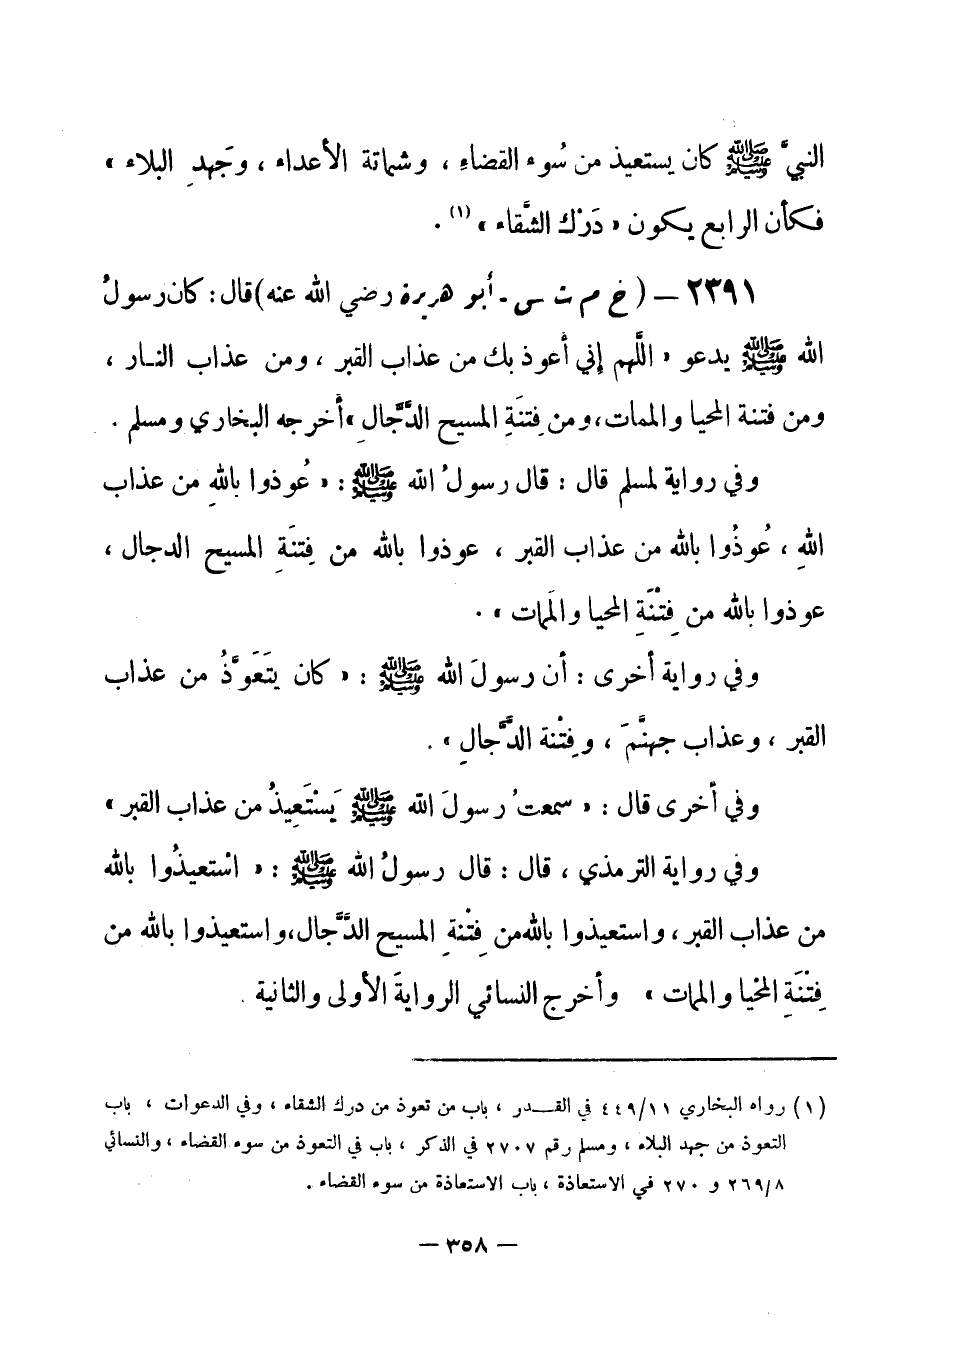 النبيَّ ﷺ كان يستعيذ من سُوء القضاءِ ، وشماتة الأعداء ، وجَهدِ البلاء »
فكأن الرابع يكون « دَرْك الشَّقاء » (١) .
٢٣٩١ – ( خ م ت س - أبو هريرة رضي الله عنه) قال : كان رسولُ
الله ﷺ يدعو « اللَّهم إني أعوذ بك من عذاب القبر ، ومن عذاب النـار ،
ومن فتنة المحيا والممات ، ومن فِتنَةِ المسيح الدَّجَّالِ » أخرجه البخاري ومسلم .
وفي رواية لمسلم قال : قال رسولُ الله ﷺ : « عُوذوا باللهِ من عذاب
اللهِ ، عُوذُوا بالله من عذاب القبر ، عوذوا بالله من فِتنَةِ المسيح الدجال ،
عوذوا بالله من فِتْنَةِ المحيا والَممات » .
وفي رواية أخرى : أن رسولَ الله ﷺ : « كان يتَعَوَّذُ من عذاب
القبر ، وعذاب جهنَّمَ ، وفِتْنة الدَّجَّالِ » .
وفي أخرى قال : « سمعتُ رسولَ الله ﷺ يَسْتَعِيذُ من عذاب القبر »
وفي رواية الترمذي ، قال : قال رسولُ الله ﷺ : « اسْتعيذُوا بالله
من عذاب القبر ، واستعيذوا بالله من فِتْنةِ المسيح الدَّجَّال ، واستعيذوا بالله من
فِتْنَةِ المحْيا والممات » وأخرج النسائي الروايةَ الأولى والثانية .
(١) رواه البخاري ٤٤٩/١١ في القــدر ، باب من تعوذ من درك الشقاء ، وفي الدعوات ، باب
التعوذ من جهد البلاء ، ومسلم رقم ٢٧٠٧ في الذكر ، باب في التعوذ من سوء القضاء ، والنسائي
٢٦٩/٨ و ٢٧٠ في الاستعاذة ، باب الاستعاذة من سوء القضاء .
– ٣٥٨ –